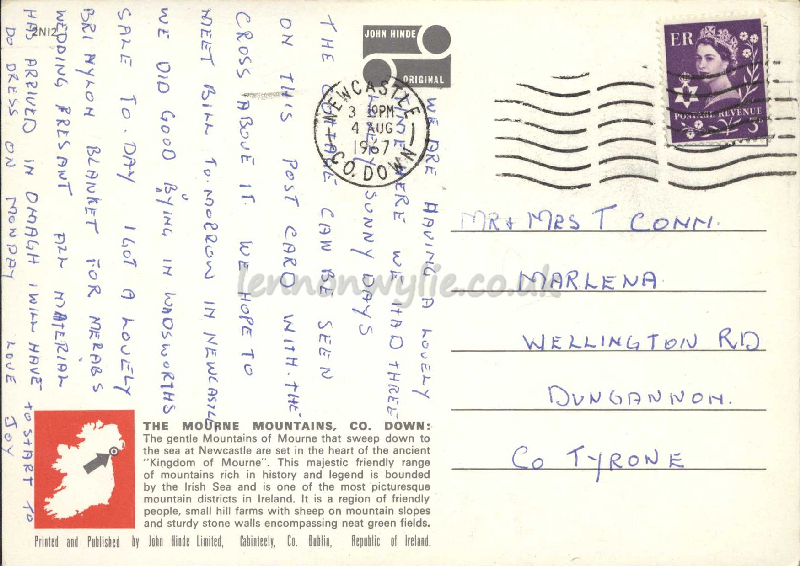 2N12
JOHN HINDE
ORIGINAL
NEWCASTLE
3 19PM
4 AUG
1967
CO. DOWN
ER
POSTAGE REVENUE
3D
WE ARE HAVING A LOVELY
TIME HERE WE HAD THREE
LOVELY SUNNY DAYS
THE COTTAGE CAN BE SEEN
ON THIS POST CARD WITH.THE
CROSS ABOVE IT. WE HOPE TO
MEET BILL TO.MORROW IN NEWCASTLE
WE DID GOOD BYING IN WADSWORTHS
SALE TO DAY I GOT A LOVELY
BRI NYLON BLANKET FOR MERABS
WEDDING PRESANT ALL MATERIAL
HAS ARRIVED IN OMAGH I WILL HAVE TO START TO
DO DRESS ON MONDAY LOVE JOY
MR + MRS T CONN.
MARLENA
WELLINGTON RD
DUNGANNON.
CO TYRONE
lennonwylie.co.uk
THE MOURNE MOUNTAINS, CO. DOWN:
The gentle Mountains of Mourne that sweep down to
the sea at Newcastle are set in the heart of the ancient
"Kingdom of Mourne". This majestic friendly range
of mountains rich in history and legend is bounded
by the Irish Sea and is one of the most picturesque
mountain districts in Ireland. It is a region of friendly
people, small hill farms with sheep on mountain slopes
and sturdy stone walls encompassing neat green fields.
Printed and Published by John Hinde Limited, Cabinteely, Co. Dublin, Republic of Ireland.